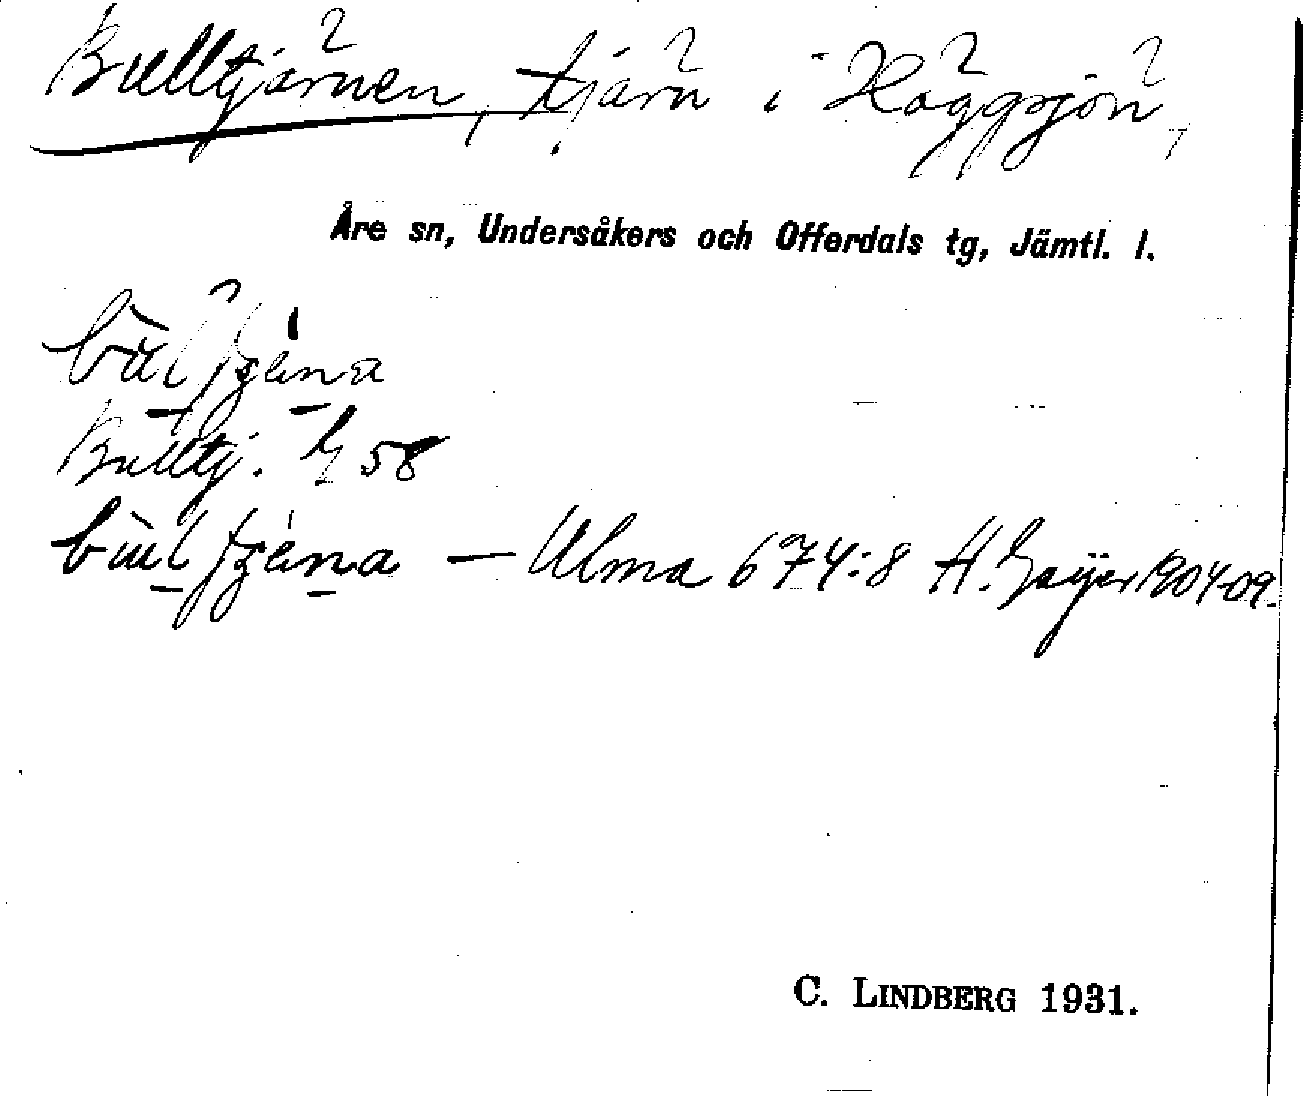 Bulltjärnen, tjärn i Häggsjön,
Åre sn, Undersåkers och Offerdals tg, Jämtl. l.
Bulltj. 58
— Ulma 674:8 H. Geijer 1904-09.
C. LINDBERG 1931.